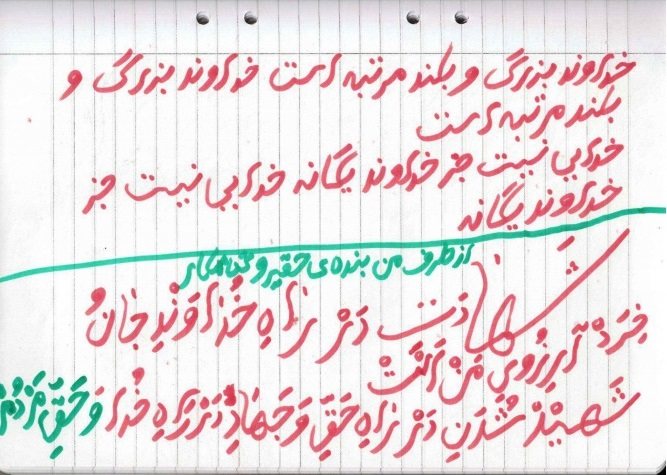 خداوند بزرگ و بلند مرتبه است خداوند بزرگ و
بلند مرتبه است
خدایی نیست جز خداوند یگانه خدایی نیست جز
خداوند یگانه
از طرف من بنده‌ی حقیر و گناهکار
شهادَت دَرْ راهِ خُداوَندِ جان و
خِرَدْ آرِزُویِ مَنْ اَسْتْ
شَهیدْ شُدَنِ دَرْ راهِ حَقّ وَ جَهادِ دَرْ راهِ خُدا وَ حَقِّ مَرْدُمْ